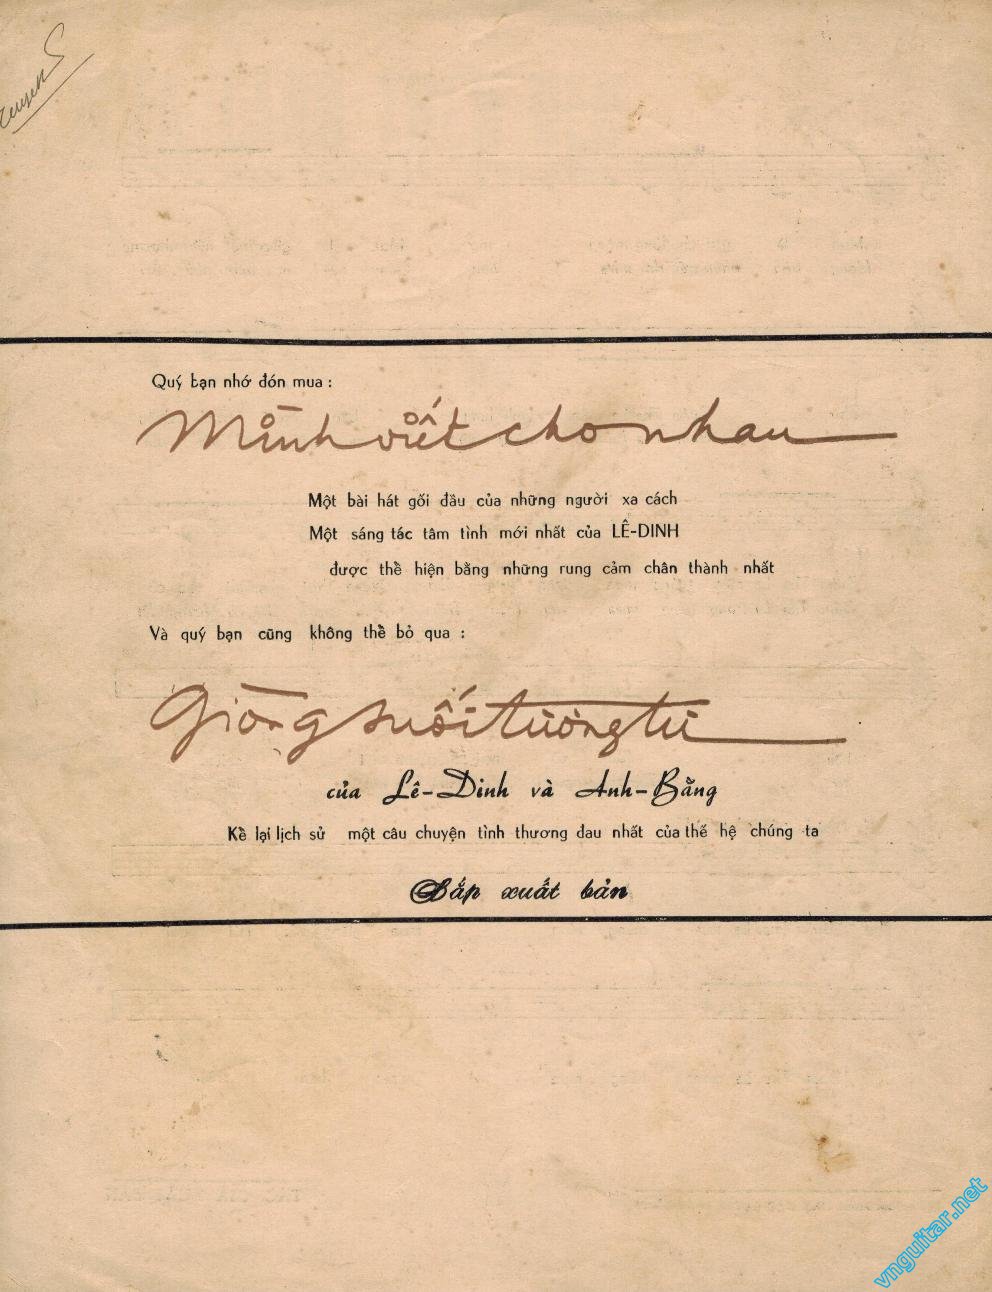 Quý bạn nhớ đón mua :
Mình viết cho nhau
Một bài hát gối đầu của những người xa cách
Một sáng tác tâm tình mới nhất của LÊ-DINH
được thể hiện bằng những rung cảm chân thành nhất
Và quý bạn cũng không thể bỏ qua :
Giòng suối tương tư
của Lê-Dinh và Anh-Bằng
Kể lại lịch sử một câu chuyện tình thương đau nhất của thế hệ chúng ta
Sắp xuất bản
vnguitar.net